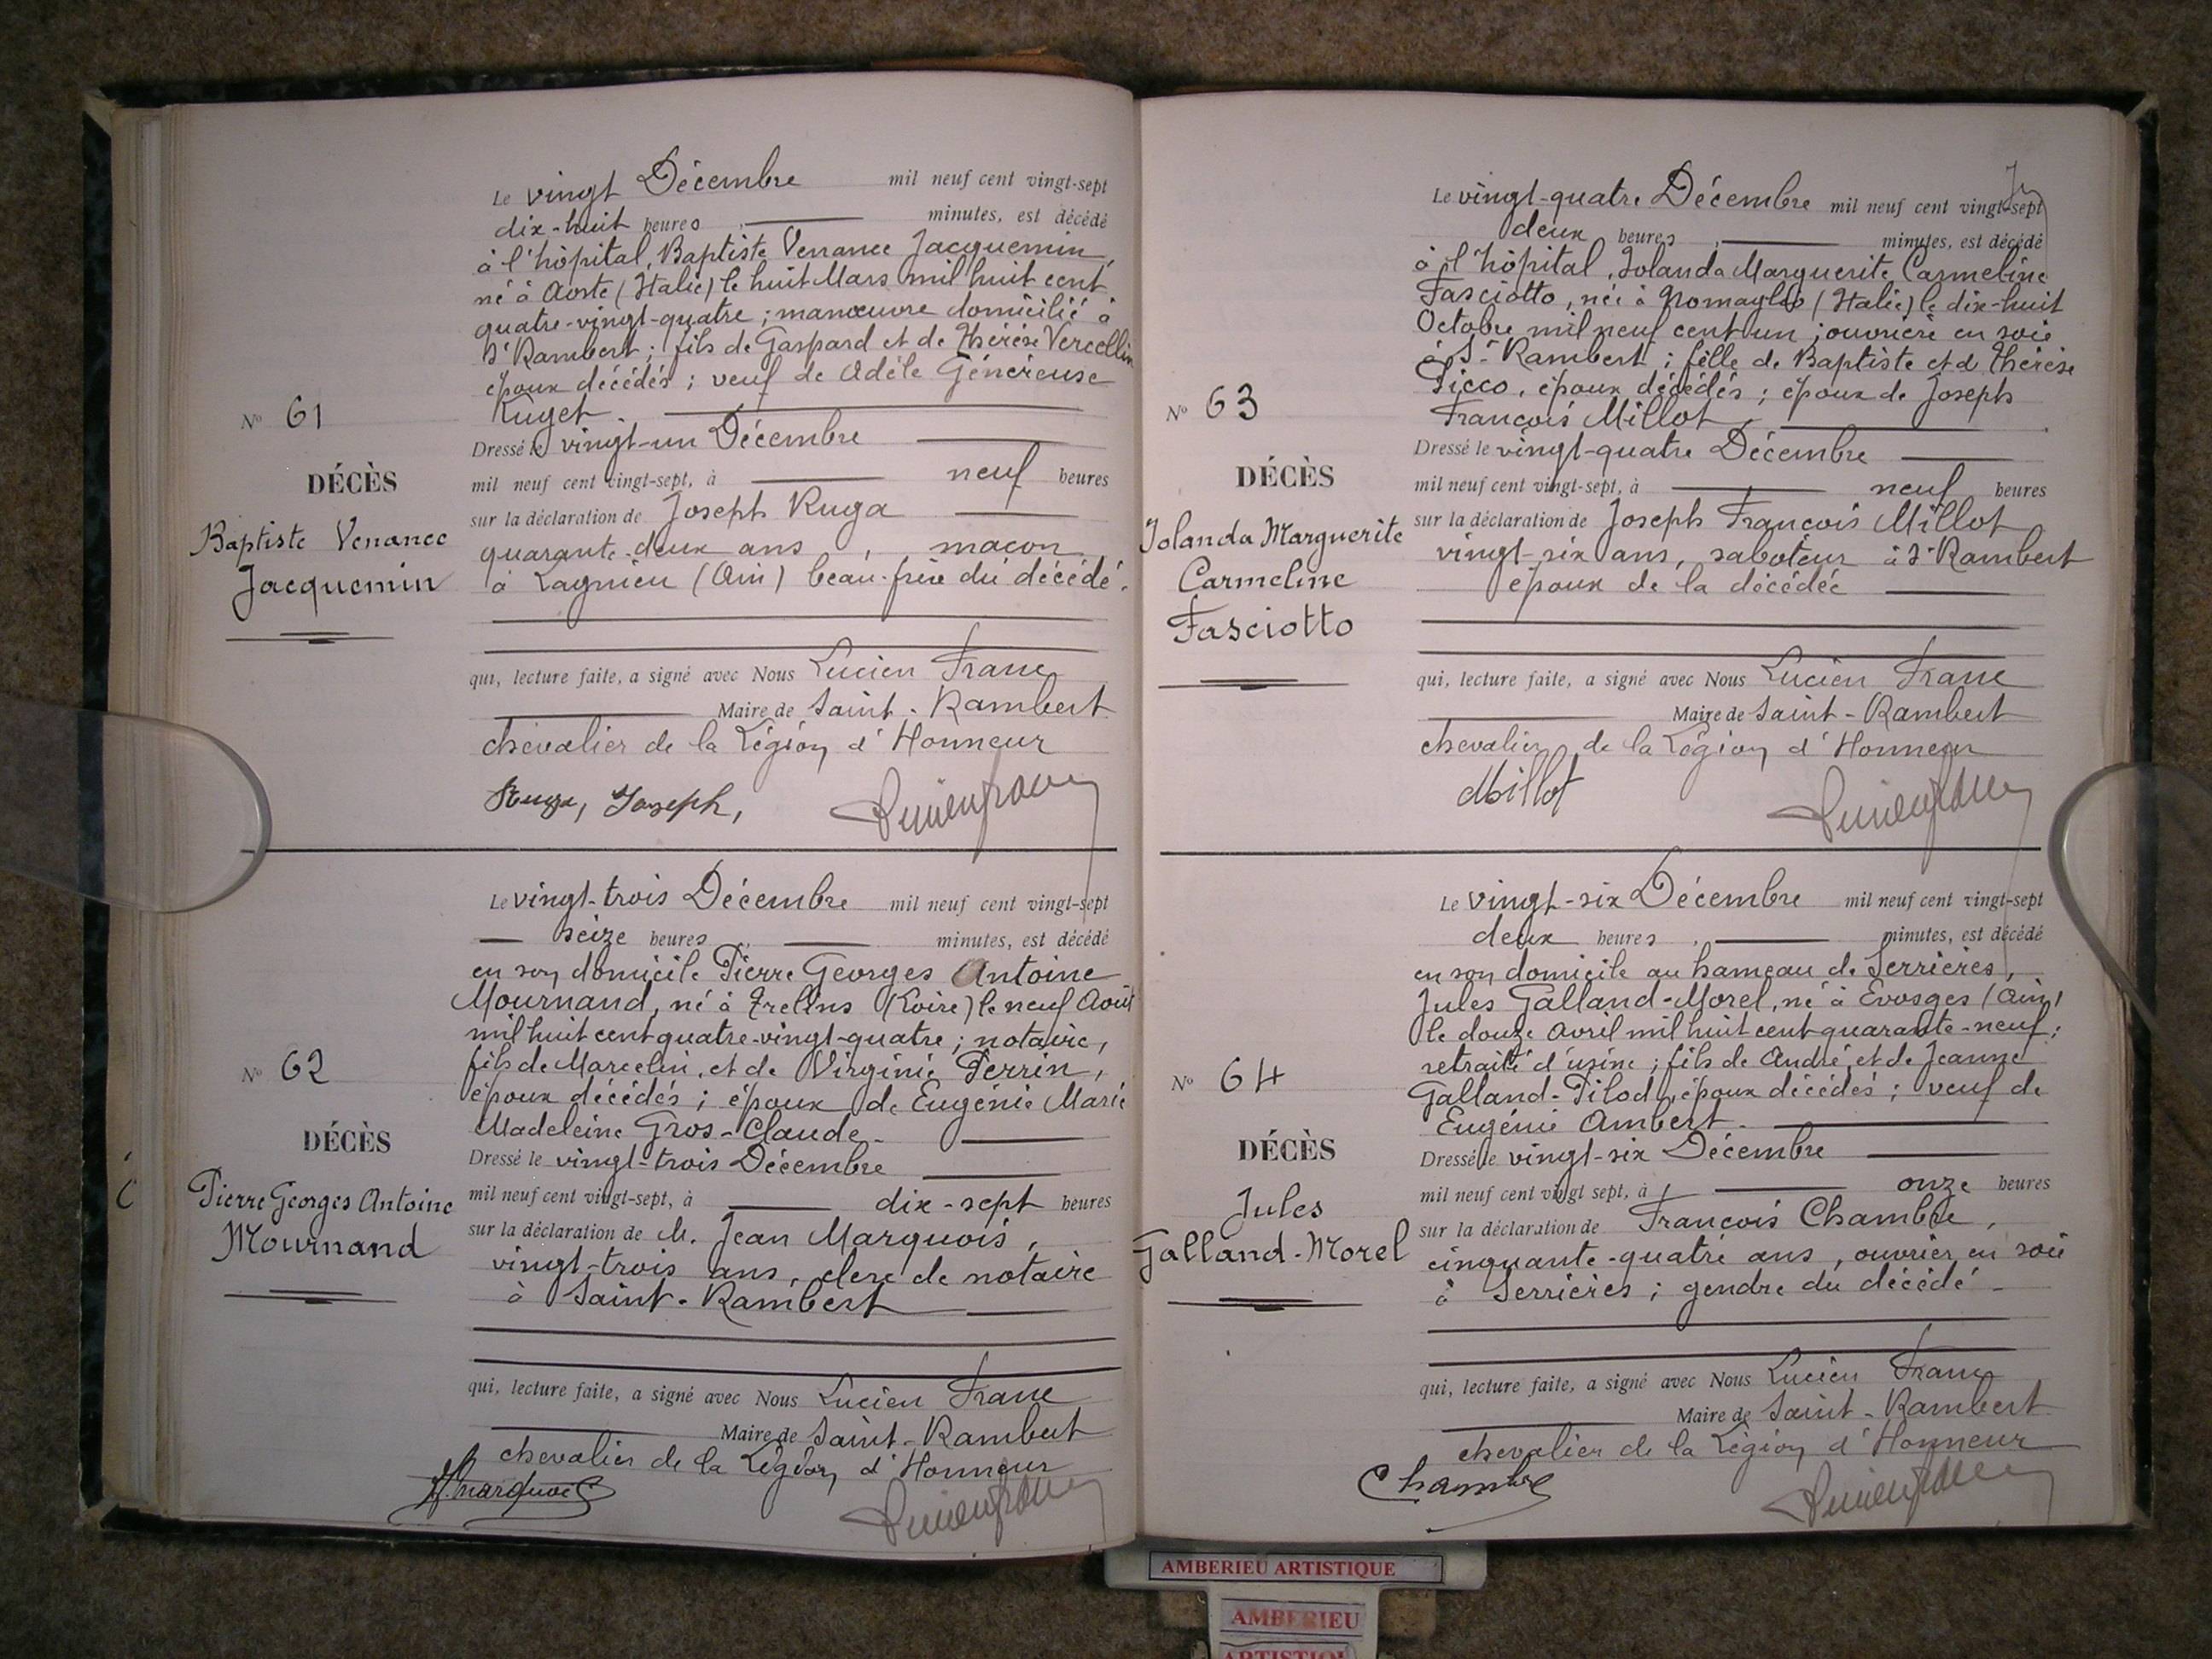 Le vingt Décembre mil neuf cent vingt-sept
dix-huit heures, minutes, est décédé
à l'hôpital, Baptiste Venance Jacquemin,
né à Aoste (Italie) le huit Mars mil huit cent
quatre-vingt-quatre; manœuvre domicilié à
St Rambert; fils de Gaspard et de Thérèse Vercellin
époux décédés; veuf de Adèle Généreuse
Ruget.
Dressé le vingt-un Décembre
mil neuf cent vingt-sept, à neuf heures
sur la déclaration de Joseph Ruga
quarante-deux ans, maçon
à Lagnieu (Ain) beau-frère du décédé.
qui, lecture faite, a signé avec Nous Lucien Franc
Maire de Saint-Rambert
chevalier de la Légion d'Honneur
Ruga, Joseph,
No 61
DÉCÈS
Baptiste Venance
Jacquemin
Le vingt-trois Décembre mil neuf cent vingt-sept
seize heures, minutes, est décédé
en son domicile Pierre Georges Antoine
Mournand, né à Trelins (Loire) le neuf Août
mil huit cent quatre-vingt-quatre; notaire,
fils de Marcelin, et de Virginie Perrin,
époux décédés; époux de Eugénie Marie
Madeleine Gros-Claude.
Dressé le vingt-trois Décembre
mil neuf cent vingt-sept, à dix-sept heures
sur la déclaration de M. Jean Marquois,
vingt-trois ans, clerc de notaire
à Saint-Rambert
qui, lecture faite, a signé avec Nous Lucien Franc
Maire de Saint-Rambert
chevalier de la Légion d'Honneur
No 62
DÉCÈS
Pierre Georges Antoine
Mournand
Le vingt-quatre Décembre mil neuf cent vingt-sept
deux heures, minutes, est décédé
à l'hôpital, Iolanda Marguerite Carmeline
Fasciotto, née à (Italie) le dix-huit
Octobre mil neuf cent un; ouvrière en soie
à St-Rambert; fille de Baptiste et d Thérèse
Picco, époux décédés; épouse de Joseph
François Millot
Dressé le vingt-quatre Décembre
mil neuf cent vingt-sept, à neuf heures
sur la déclaration de Joseph François Millot
vingt-six ans, saboteur à St-Rambert
époux de la décédée
qui, lecture faite, a signé avec Nous Lucien Franc
Maire de Saint-Rambert
chevalier de la Légion d'Honneur
Millot
No 63
DÉCÈS
Iolanda Marguerite
Carmeline
Fasciotto
Le vingt-six Décembre mil neuf cent vingt-sept
deux heures, minutes, est décédé
en son domicile au hameau de Serrières,
Jules Galland-Morel, né à Evosges (Ain)
le douze avril mil huit cent quarante-neuf;
retraité d'usine; fils de André, et de Jeanne
Galland-Pilod, époux décédés; veuf de
Eugénie Ambert.
Dressé le vingt-six Décembre
mil neuf cent vingt sept, à onze heures
sur la déclaration de François Chambre,
cinquante-quatre ans, ouvrier en soie
à Serrières; gendre du décédé
qui, lecture faite, a signé avec Nous Lucien Franc
Maire de Saint-Rambert
chevalier de la Légion d'Honneur
Chambre
No 64
DÉCÈS
Jules
Galland-Morel
AMBERIEU ARTISTIQUE
AMBERIEU